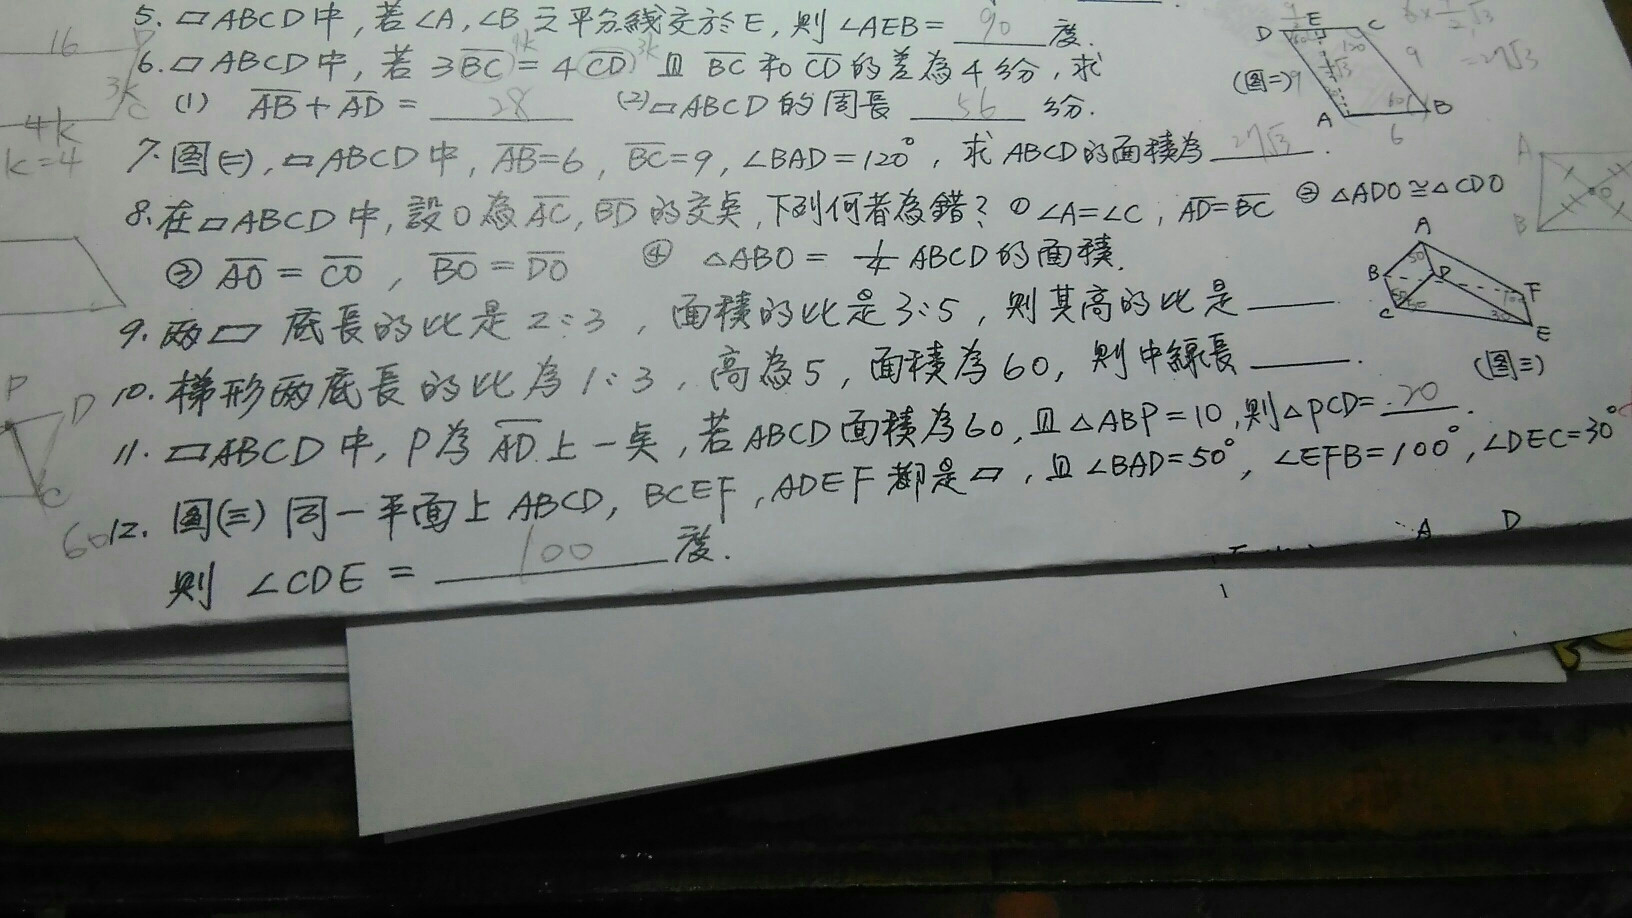 5. ▱ABCD中,若∠A,∠B之平分線交於E,則∠AEB= 90 度.
6. ▱ABCD中,若3BC=4CD且BC和CD的差為4公分,求
(1) AB+AD= 28 (2)▱ABCD的周長 56 公分.
7. 图(二),▱ABCD中,AB=6,BC=9,∠BAD=120°,求ABCD的面積為 27√3 .
8. 在▱ABCD中,設O為AC,BD的交点,下列何者為錯? ①∠A=∠C,AD=BC ②△ADO≅△CDO
③ AO=CO,BO=DO ④ △ABO=1/4 ABCD的面積.
9. 兩▱底長的比是2:3,面積的比是3:5,則其高的比是
10. 梯形兩底長的比為1:3,高為5,面積為60,則中線長 .
11. ▱ABCD中,P為AD上一点,若ABCD面積為60,且△ABP=10,則△PCD= 20 .
12. 图(三)同一平面上ABCD,BCEF,ADEF都是▱,且∠BAD=50°,∠EFB=100°,∠DEC=30°
則∠CDE= 100 度.
16
3k
4k
k=4
9k
3k
D E C
(图二)
9
9
120
60
A B
6
=27√3
A
B
O
A
B D F
C E
50
(图三)
P D
C
60
A D